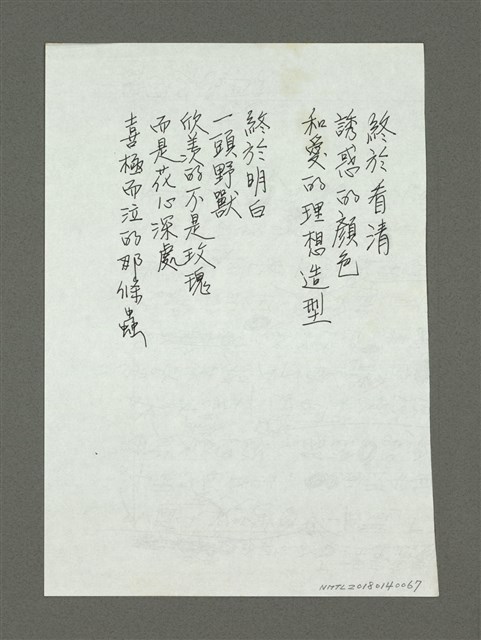 終於看清
誘惑的顏色
和愛的理想造型
終於明白
一頭野獸
欣羡的不是玫瑰
而是花心深處
喜極而泣的那條蟲
NMTL20180140067